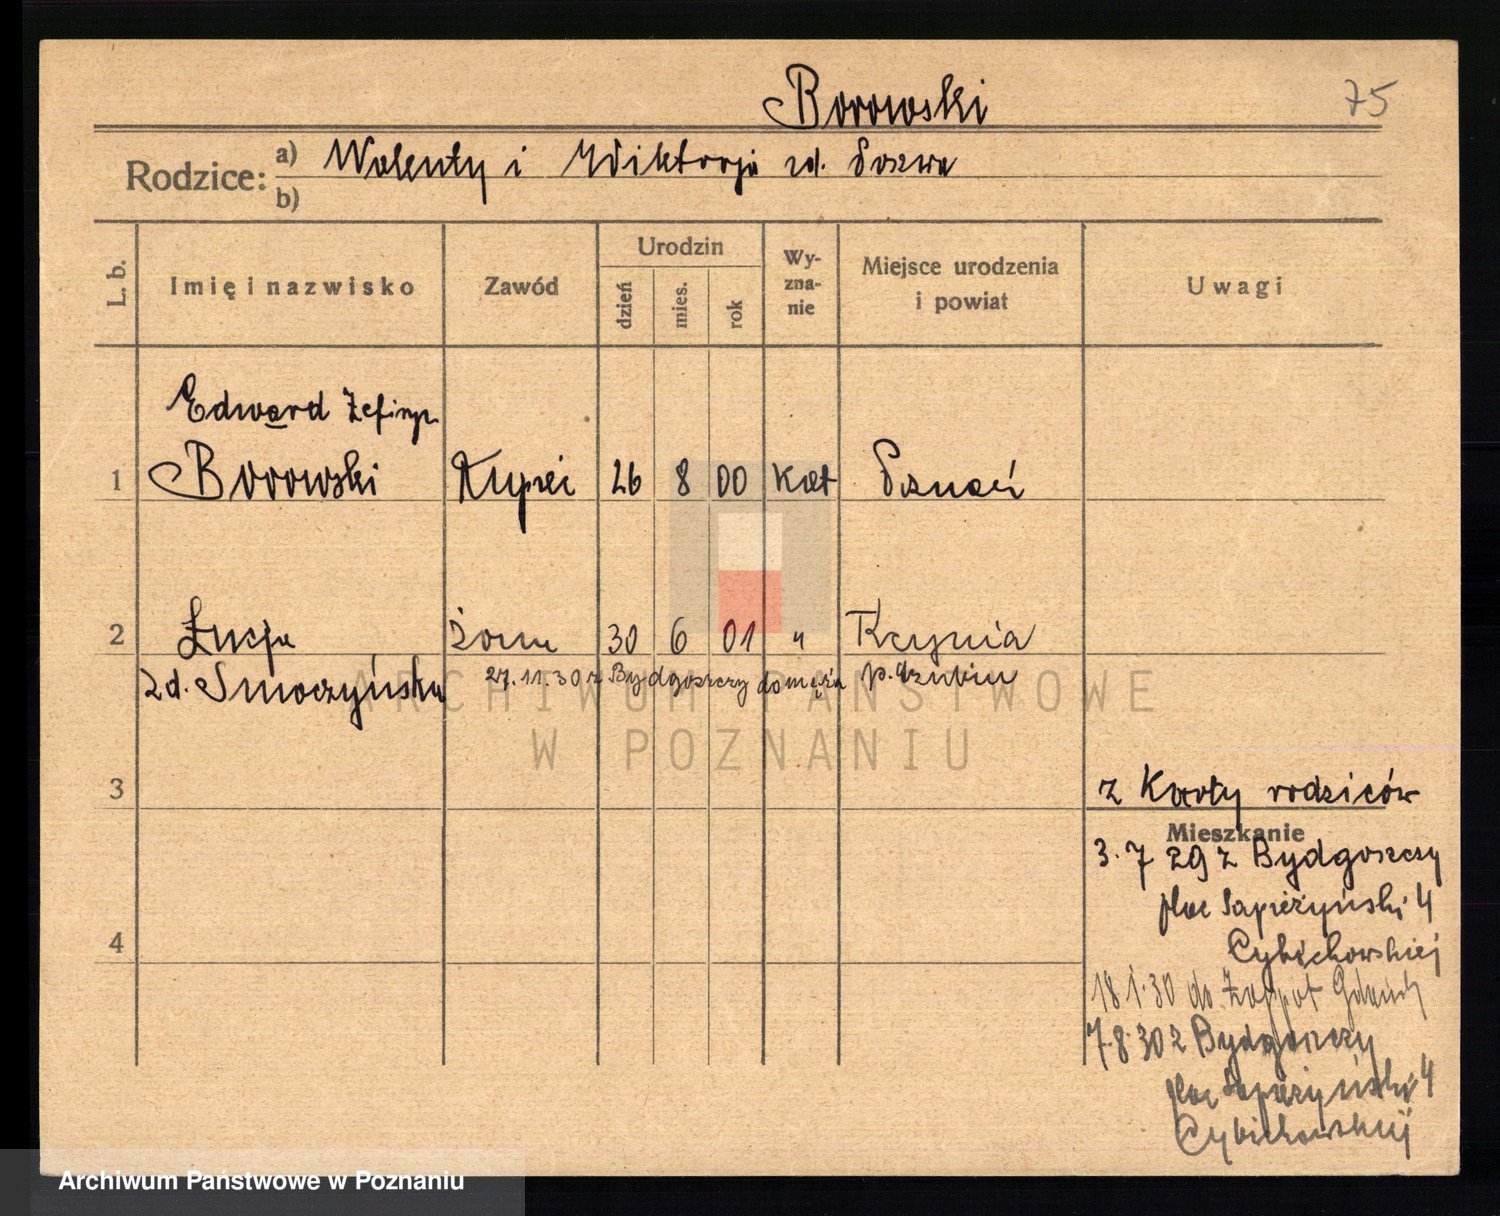 Borowski
75
Rodzice: a) Walenty i Wiktorja zd.
b)
L. b.
Imię i nazwisko
Zawód
Urodzin
dzień
mies.
rok
Wy-
zna-
nie
Miejsce urodzenia
i powiat
Uwagi
Edward Zefiryn
1 Borowski Kupiec 26 8 00 Kat Poznań
2 Łucja żona 30 6 01 " Kcynia
zd. Smoczyńska 27.11.30 z Bydgoszczy do męża p. Szubin
ARCHIWUM PAŃSTWOWE
W POZNANIU
3
z Karty rodziców
Mieszkanie
3.7 29 z Bydgoszczy
plac Sapieżyński 4
Cybichowskiej
4
18 1.30 do Zoppot Gdańsk
7.8.30 z Bydgoszczy
plac Sapieżyński 4
Cybichowskiej
Archiwum Państwowe w Poznaniu